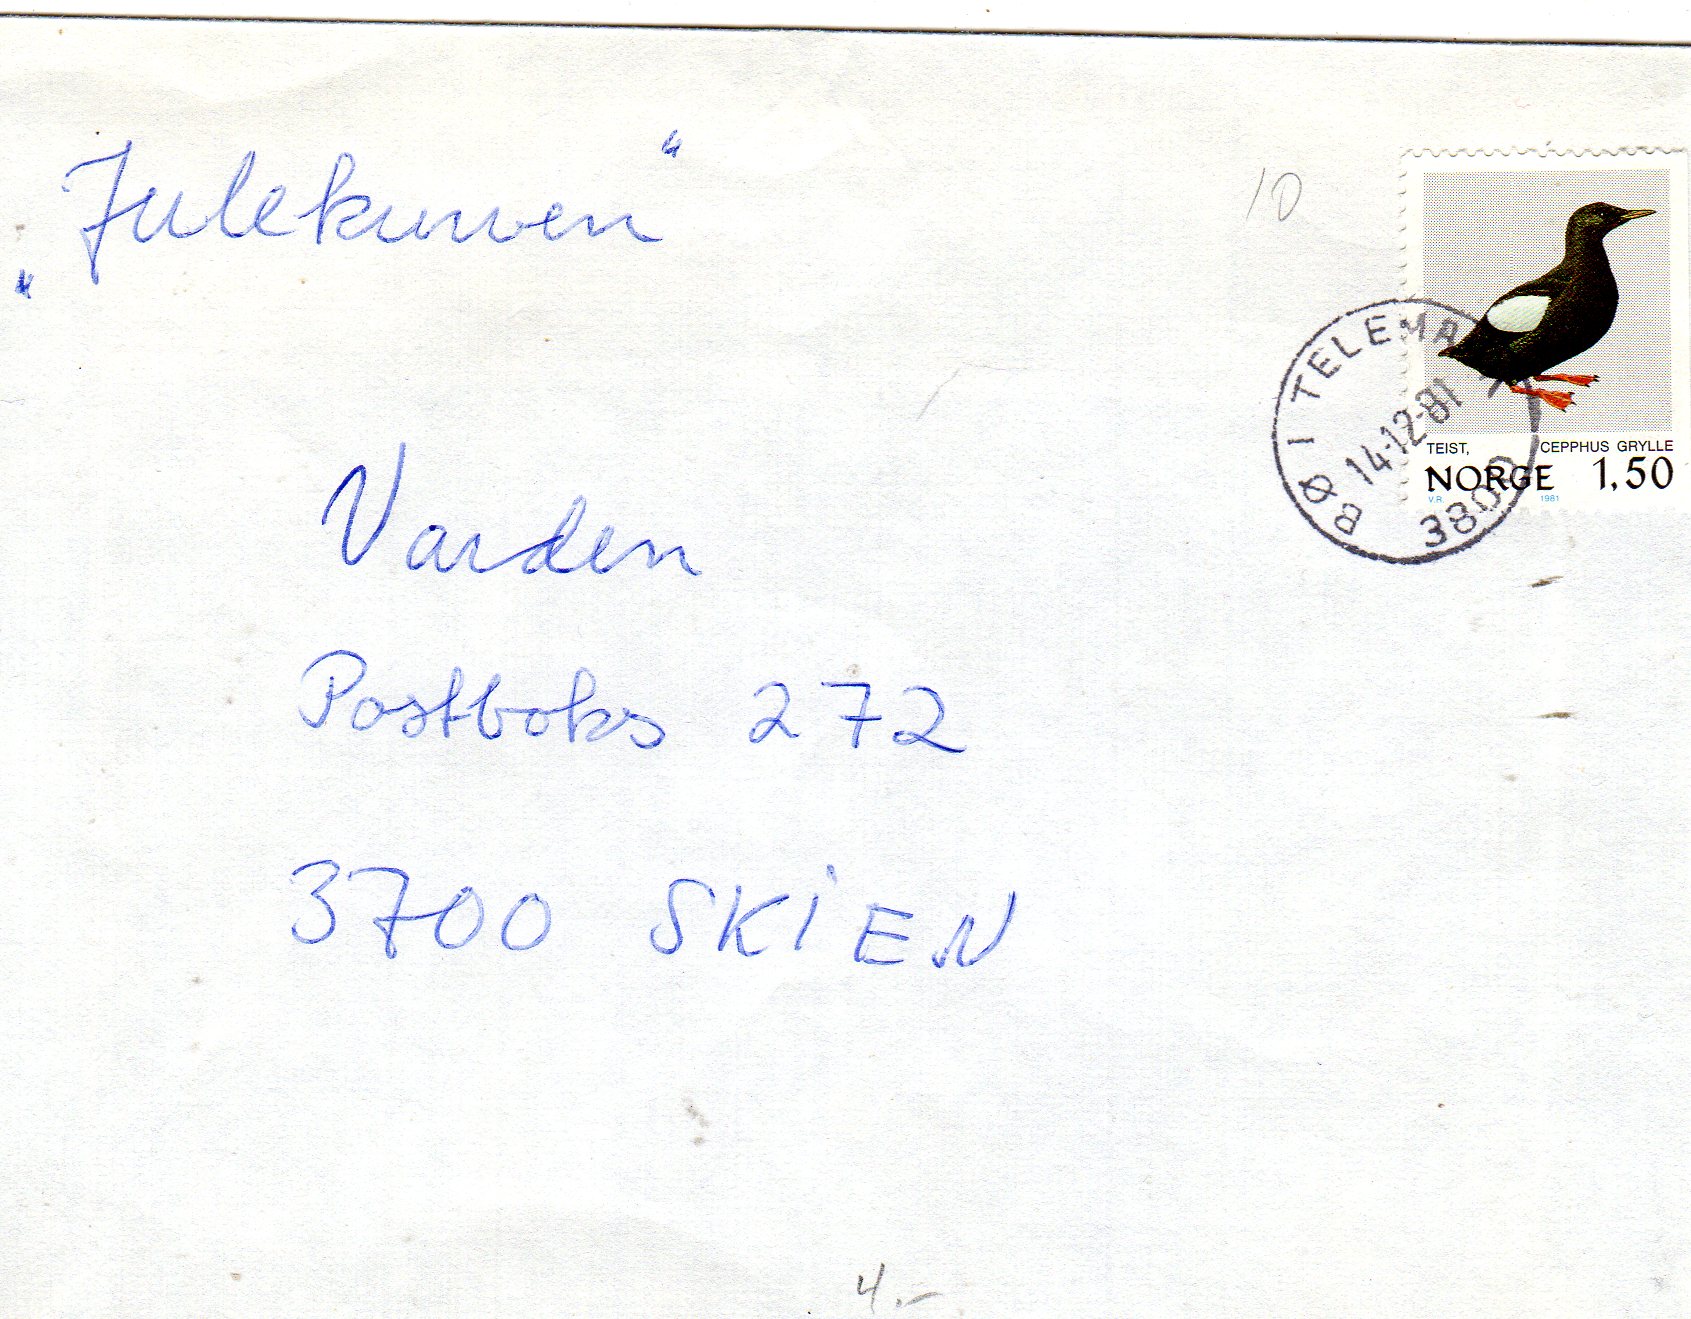 „Julekurven“
10
BØ I TELEMARK
14-12-81
3800
TEIST, CEPPHUS GRYLLE
NORGE 1,50
V.R. 1981
Varden
Postboks 272
3700 SKIEN
4.-